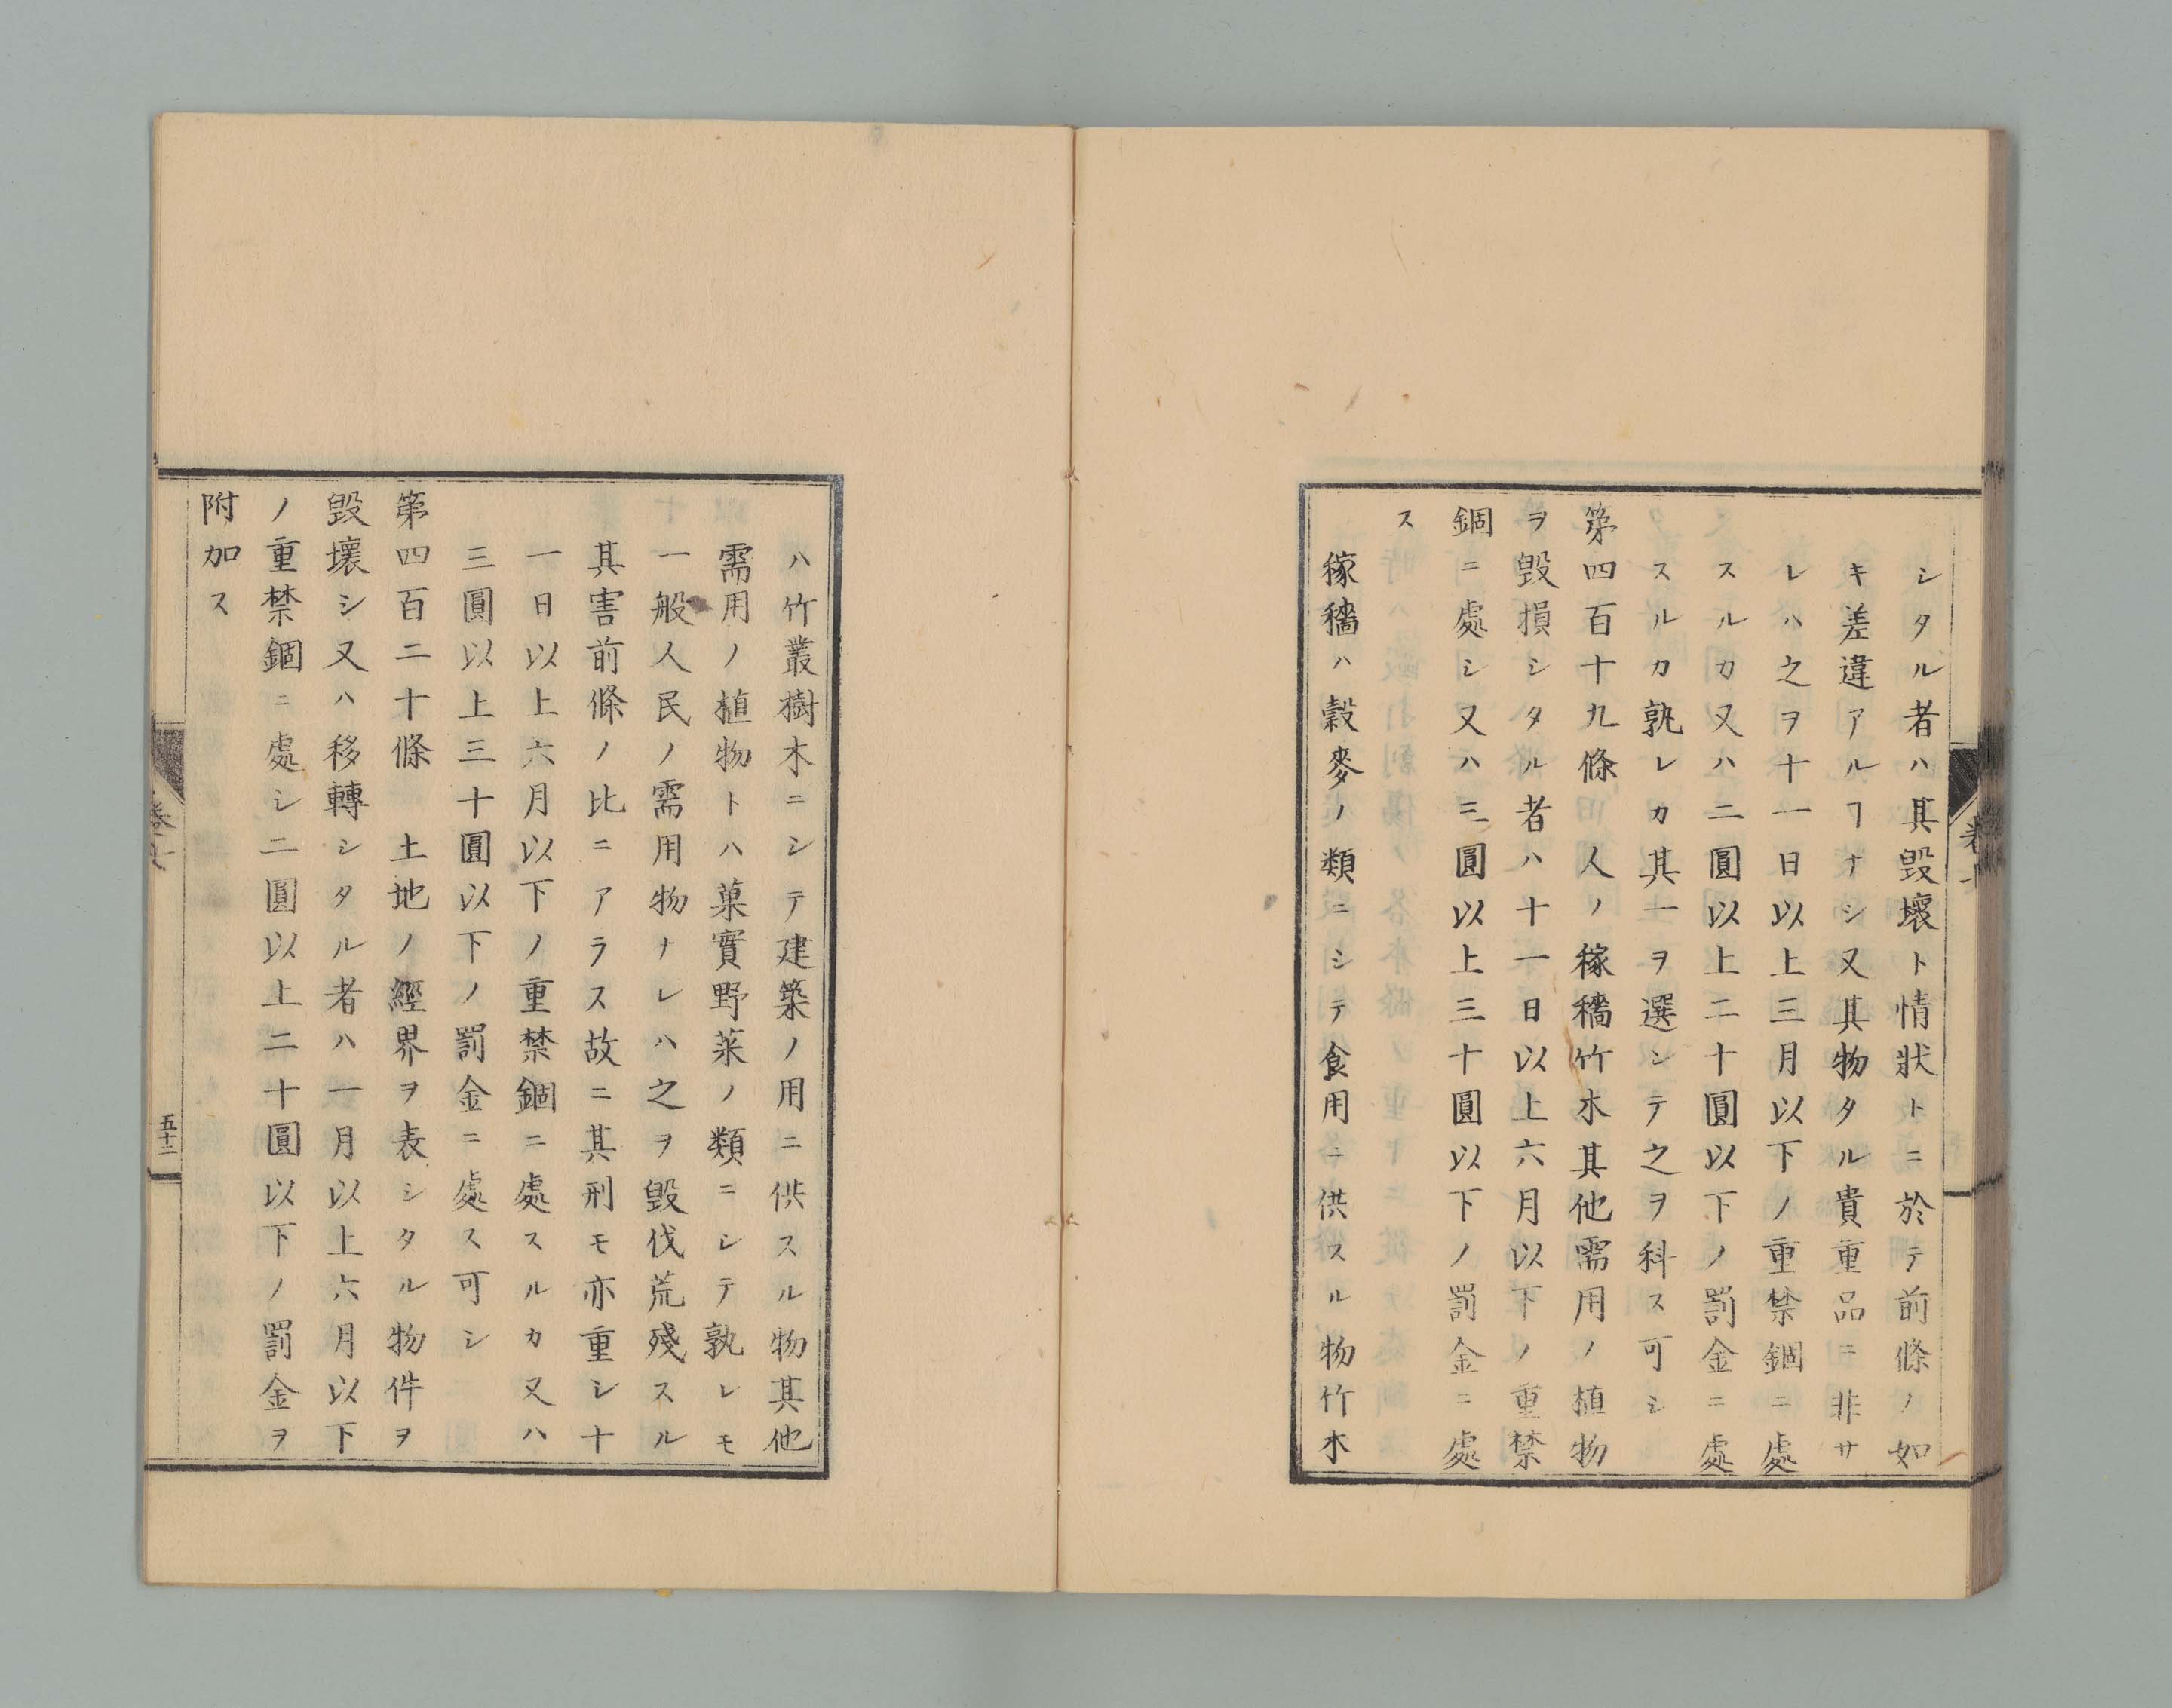 シタル者ハ其毀壞ト情狀トニ於テ前條ノ如
キ差違アルヿナシ又其物タル貴重品ニ非サ
レハ之ヲ十一日以上三月以下ノ重禁錮ニ處
スルカ又ハ二圓以上二十圓以下ノ罰金ニ處
スルカ孰レカ其一ヲ選ンテ之ヲ科ス可シ
第四百十九條 人ノ稼穡竹木其他需用ノ植物
ヲ毀損シタル者ハ十一日以上六月以下ノ重禁
錮ニ處シ又ハ三圓以上三十圓以下ノ罰金ニ處
ス
稼穡ハ穀麥ノ類ニシテ食用ニ供スル物竹木
ハ竹叢樹木ニシテ建築ノ用ニ供スル物其他
需用ノ植物トハ菓實野菜ノ類ニシテ孰レモ
一般人民ノ需用物ナレハ之ヲ毀伐荒殘スル
其害前條ノ比ニアラス故ニ其刑モ亦重シ十
一日以上六月以下ノ重禁錮ニ處スルカ又ハ
三圓以上三十圓以下ノ罰金ニ處ス可シ
第四百二十條 土地ノ經界ヲ表シタル物件ヲ
毀壞シ又ハ移轉シタル者ハ一月以上六月以下
ノ重禁錮ニ處シ二圓以上二十圓以下ノ罰金ヲ
附加ス
五十二